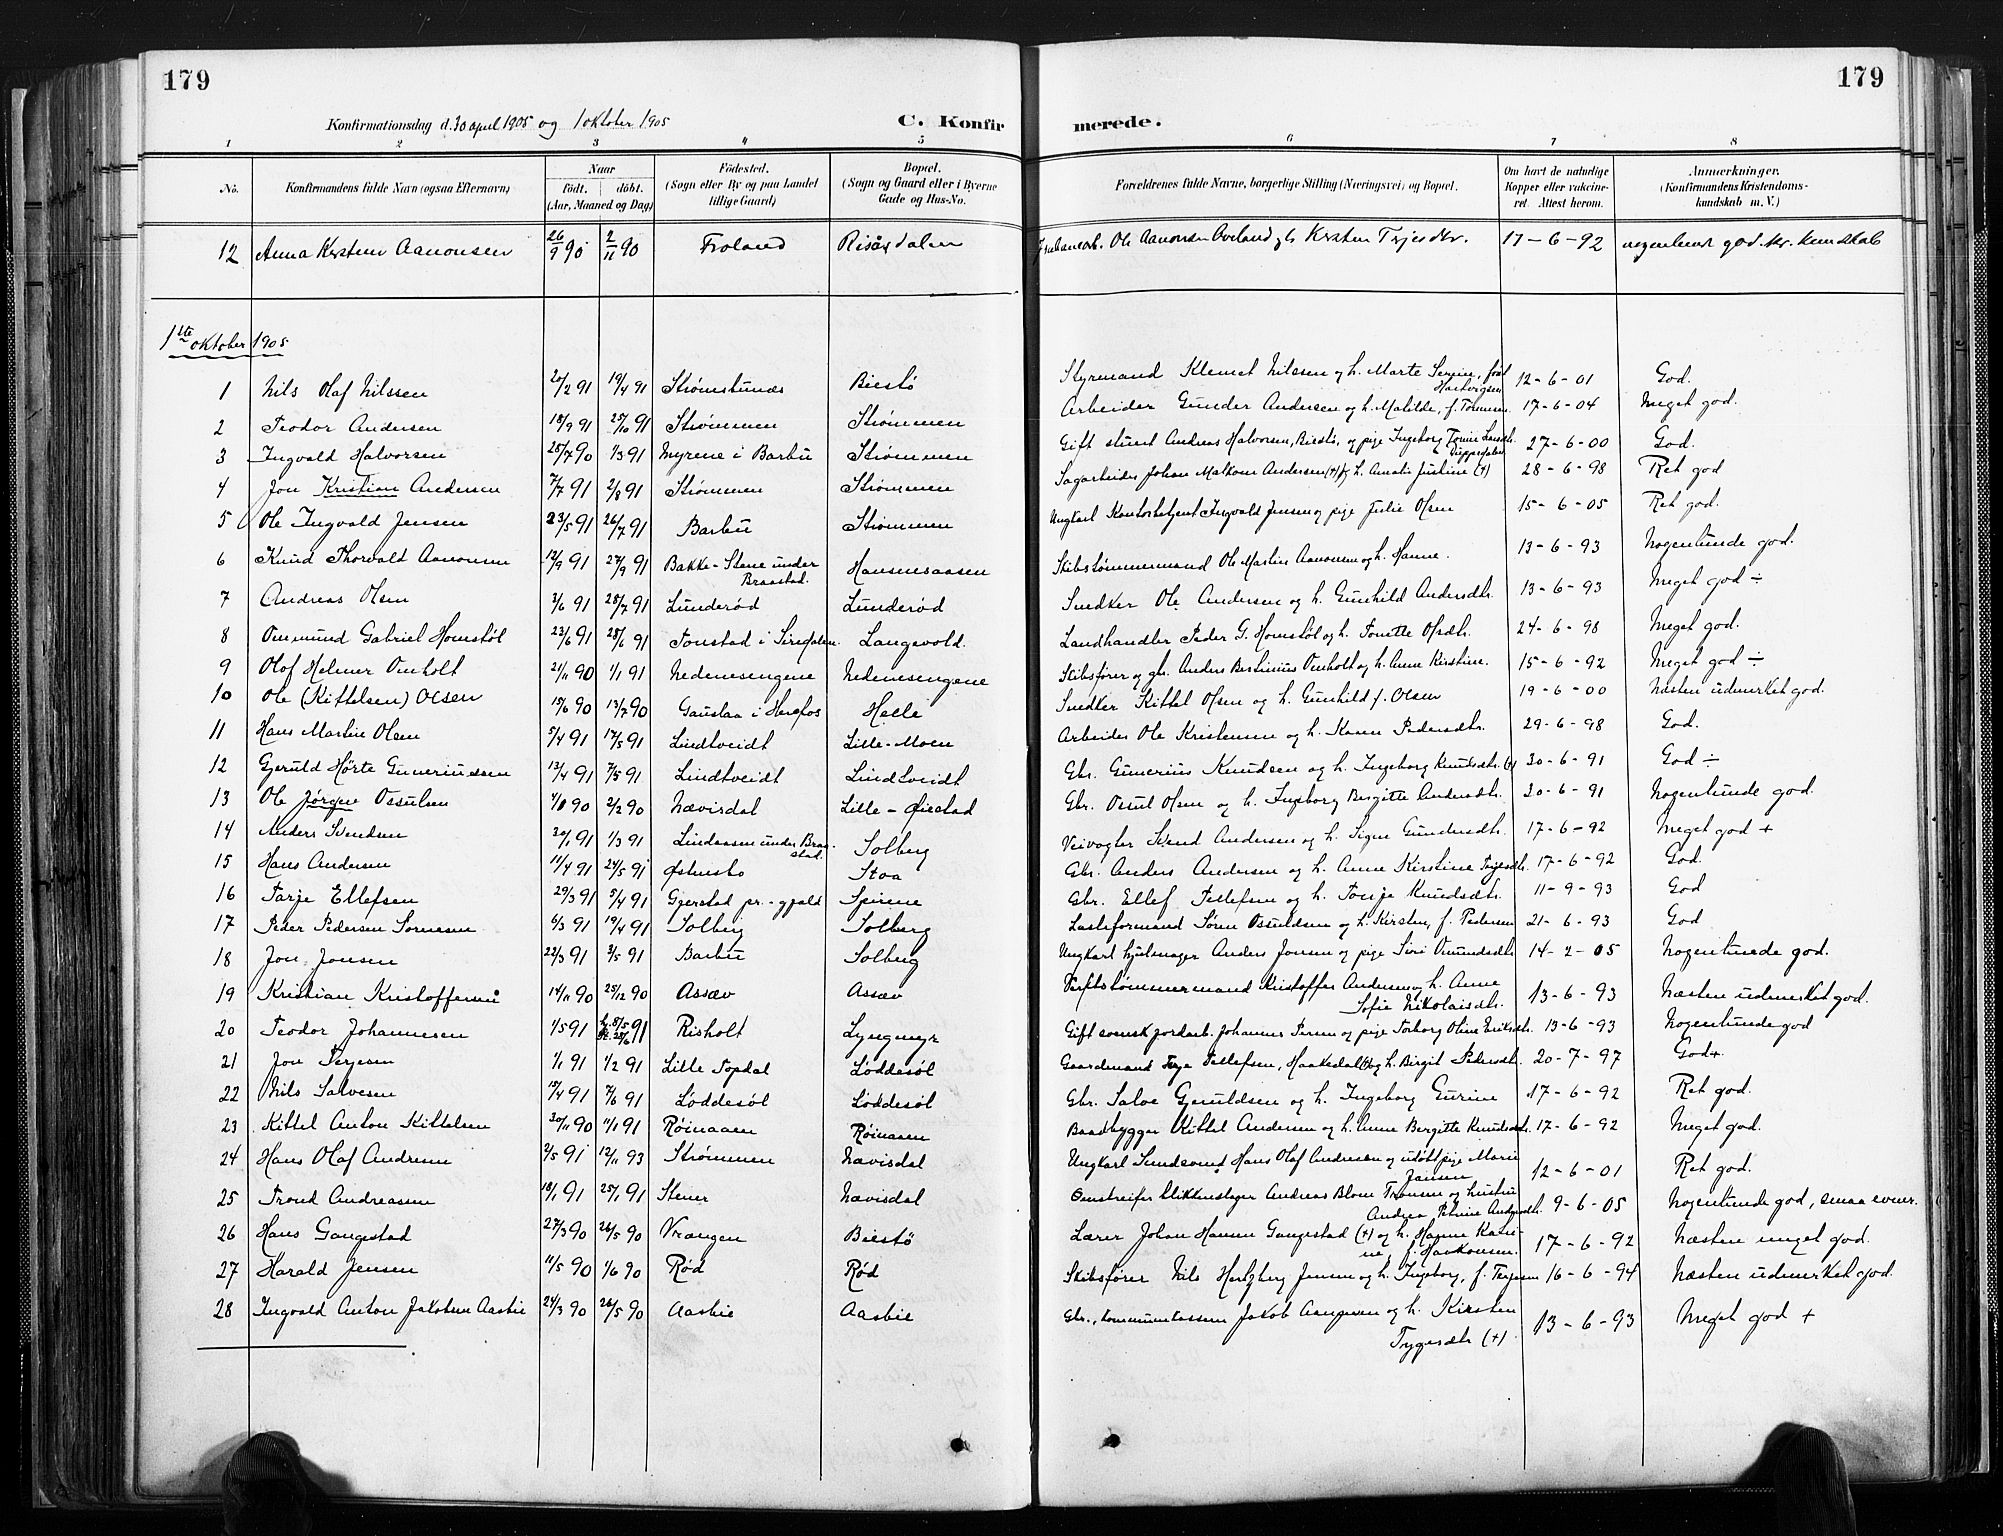 179
179
Konfirmationsdag d. 30 april 1905 og 1 oktober 1905
C. Konfir
merede.
1 2 3 4 5 6 7 8
No.
Konfirmandens fulde Navn (ogsaa Efternavn)
Naar
født. døbt.
(Aar, Maaned og Dag)
Fødested.
(Sogn eller By og paa Landet
tillige Gaard)
Bopæl.
(Sogn og Gaard eller i Byerne
Gade og Hus-No.
Forældrenes fulde Navne, borgerlige Stilling (Næringsvei) og Bopæl.
Om havt de naturlige
Kopper eller vakcine-
ret. Attest herom.
Anmærkninger.
(Konfirmandens Kristendoms-
kundskab m. V.)
12 Anna Kirstine Aanonsen 26/9 90 2/11 90 Froland Risåsdalen Ole Aanonsen Oveland og h. Kirsten Terjesdtr. 17-6-92 nogenlunde god kr. kundskab
1ste oktober 1905
1 Nils Olaf Nilssen 20/2 91 19/4 91 Strømstunæs Biestø Styrmand Klemet Nilsen og h. Marte Serine, født Hartvigsen 12-6-01 God.
2 Teodor Andersen 18/9 91 25/10 91 Strømmen Strømmen Arbeider Gunder Andersen og h. Matilde, f. Tønnesen 17-6-04 Meget god.
3 Ingvald Halvorsen 28/7 90 1/3 91 Myrene i Barbu Strømmen Gift stuert Andreas Halvorsen, Biestø, og pige Ingeborg Tomine Larsdtr. 27-6-00 God.
4 Jon Kristian Andersen 7/7 91 2/8 91 Strømmen Strømmen Sagarbeider Johan Malkom Andersen (+) og h. Amalie Justine (+) 28-6-98 Ret god
5 Ole Ingvald Jensen 23/5 91 26/7 91 Barbu Strømmen Ungkarl Kontorbetjent Ingvald Jensen og pige Julie Olsen 15-6-05 Ret god.
6 Knud Thorvald Aanonsen 12/9 91 27/9 91 Bakke-Stene under Braastad. Hansensaasen Skibstømmermand Ole Martin Aanonsen og h. Hanne. 13-6-93 Nogenlunde god.
7 Andreas Olsen 3/6 91 28/7 91 Lunderød Lunderød Snedker Ole Andersen og h. Gunhild Andersdtr. 13-6-93 Meget god ÷
8 Ommund Gabriel Homstøl 23/6 91 28/6 91 Tonstad i Siredalen. Langevold. Landhandler Peder G. Homstøl og h. Tonette Olsdtr. 24-6-98 Meget god.
9 Olaf Helmer Omholt 21/11 90 1/1 91 Nedenesengene Nedenesengene Skibsfører og gbr. Anders Bertinius Omholt og h. Anne Kirstine. 15-6-92 Meget god ÷
10 Ole (Kittelsen) Olsen 15/6 90 13/7 90 Gauslaa i Herefos Helle Snedker Kittel Olsen og h. Gunhild f. Olsen 19-6-00 Næsten udmerket god.
11 Hans Martin Olsen 5/4 91 17/5 91 Lindtveidt Lille-Moen Arbeider Ole Kristensen og h. Karen Pedersdtr. 29-6-98 God.
12 Gjeruld Hørte Gunerinssen 13/4 91 7/5 91 Lindtveidt Lindtveidt Gbr. Gunerius Knudsen og h. Ingeborg Knudsdtr. (+) 20-6-91 God ÷
13 Ole Jørgen Ossulsen 1/1 90 2/2 90 Nævisdal Lille-Øiestad Gbr. Ossul Olsen og h. Ingeborg Birgitte Andersdtr. 20-6-91 Nogenlunde god.
14 Anders Svendsen 20/1 91 1/3 91 Lindaasen under Braastad. Solberg Veivogter Svend Andersen og h. Signe Gundersdtr. 17-6-92 Meget god +
15 Hans Andersen 11/4 91 24/5 91 Østensbo Stoa Gbr. Anders Andersen og h. Anne Kirstine Terjesdtr. 17-6-92 God.
16 Tarje Ellefsen 29/3 91 5/4 91 Gjerstad pr.-gjæld Spirene Gbr. Ellef Tellefsen og h. Tonje Knudsdtr. 11-9-93 God
17 Peder Pedersen Sørensen 6/3 91 19/4 91 Solberg Solberg Lasteformand Søren Ossuldsen og h. Kirsten, f. Pedersen 21-6-93 God
18 Jon Jonsen 22/3 91 3/5 91 Barbu Solberg Ungkarl hjulmager Anders Jonsen og pige Siri Omundsdtr. 14-2-05 Nogenlunde god.
19 Kristian Kristoffersen 14/11 90 25/12 90 Assæv Assæv Verftstømmermand Kristoffer Andersen og h. Anne Sofie Nikolaisdtr. 13-6-93 Næsten udmerket god.
20 Teodor Johannesen 1/5 91 Risholt Lyngmyr Gift svensk jordarb. Johannes Person og pige Torborg Oline Eriksdtr. 13-6-93 Nogenlunde god
21 Jon Terjesen 1/1 91 1/2 91 Lille Topdal Løddesøl Gaardmand Terje Tellefsen, Haakedal og h. Birgit Pedersdtr. 20-7-97 God+
22 Nils Salvesen 15/4 91 7/6 91 Løddesøl Løddesøl Gbr. Salve Gjeruldsen og h. Ingeborg Gurine 17-6-92 Ret god.
23 Kittel Anton Kittelsen 30/11 90 4/1 91 Røinaasen Røinaasen Baadbygger Kittel Andersen og h. Anne Bergitte Knudsdtr. 17-6-92 Meget god.
24 Hans Olaf Andresen 2/5 91 12/11 93 Strømmen Nævisdal Ungkarl Hans Olaf Andresen og pige Marie Jansen 12-6-01 Ret god.
25 Trond Andreassen 18/1 91 25/1 91 Stener Nævisdal Omstreifer blikkenslager Andreas Blom Tronsen og hustru Andrea Petrine Andersdtr. 9-6-05 Nogenlunde god, smaa evner.
26 Hans Gangestad 27/3 90 26/5 90 Vrangen Biestø Lærer Johan Hansen Gangestad (+) og h. Hanne Karine, f. Haakonsen. 17-6-92 Næsten meget god.
27 Harald Jensen 11/5 90 1/6 90 Rød Rød Skibsfører Nils Hertzberg Jensen og h. Ingeborg, f. Terjesen 16-6-94 Næsten udmerket god.
28 Ingvald Anton Jakobsen Aasbie 24/3 90 26/5 90 Aasbie Aasbie Gbr., kommunekasserer Jakob Aanonsen og h. Kirsten Trygesdtr (+). 13-6-93 Meget god +